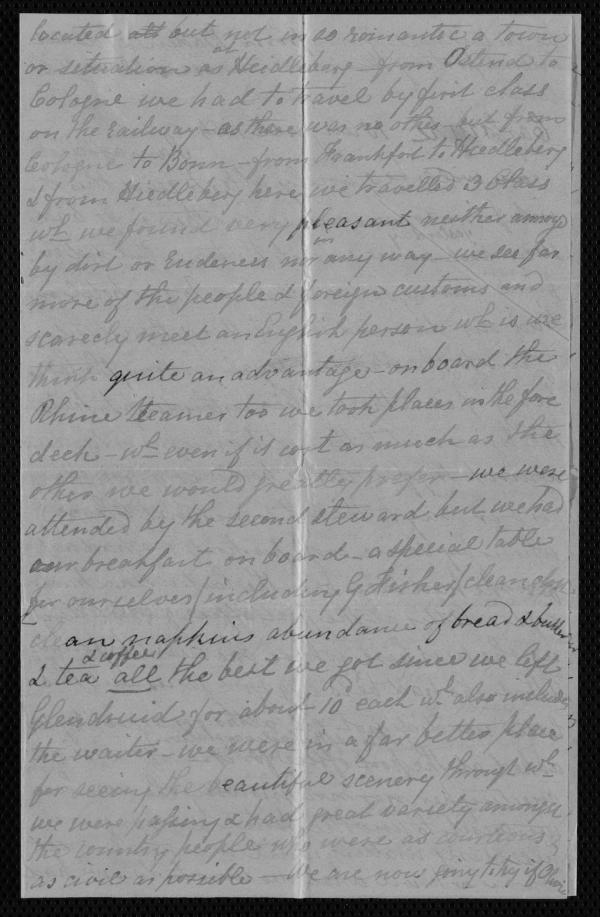 located all but not in so romantic a town
or situation as at Heidleberg from Ostend to
Cologne we had to travel by first class
on the railway - as there was no other but from
Cologne to Bonn - from Frankfort to Hiedleberg
& from Hiedleberg here we travelled 3 Class
wh we found very pleasant neither annoyd
by dirt or rudeness nor in any way - we see far
more of the people & foreign customs and
scarcely meet an English person wh is we
think quite an advantage - on board the
Rhine Steamer too we took places in the fore
deck - wh even if it cost as much as the
other we would greatly prefer - we were
attended by the second steward but we had
our breakfast on board - a special table
for ourselves (including G Fisher) clean cloth
clean napkins abundance of bread & butter
& tea & coffee all the best we got since we left
Glendruid for about 10d each wh also includes
the waiter - we were in a far better place
for seeing the beautiful scenery through wh
we were passing & had great variety amongst
the country people who were as courteous &
as civil as possible - We are now going to try if